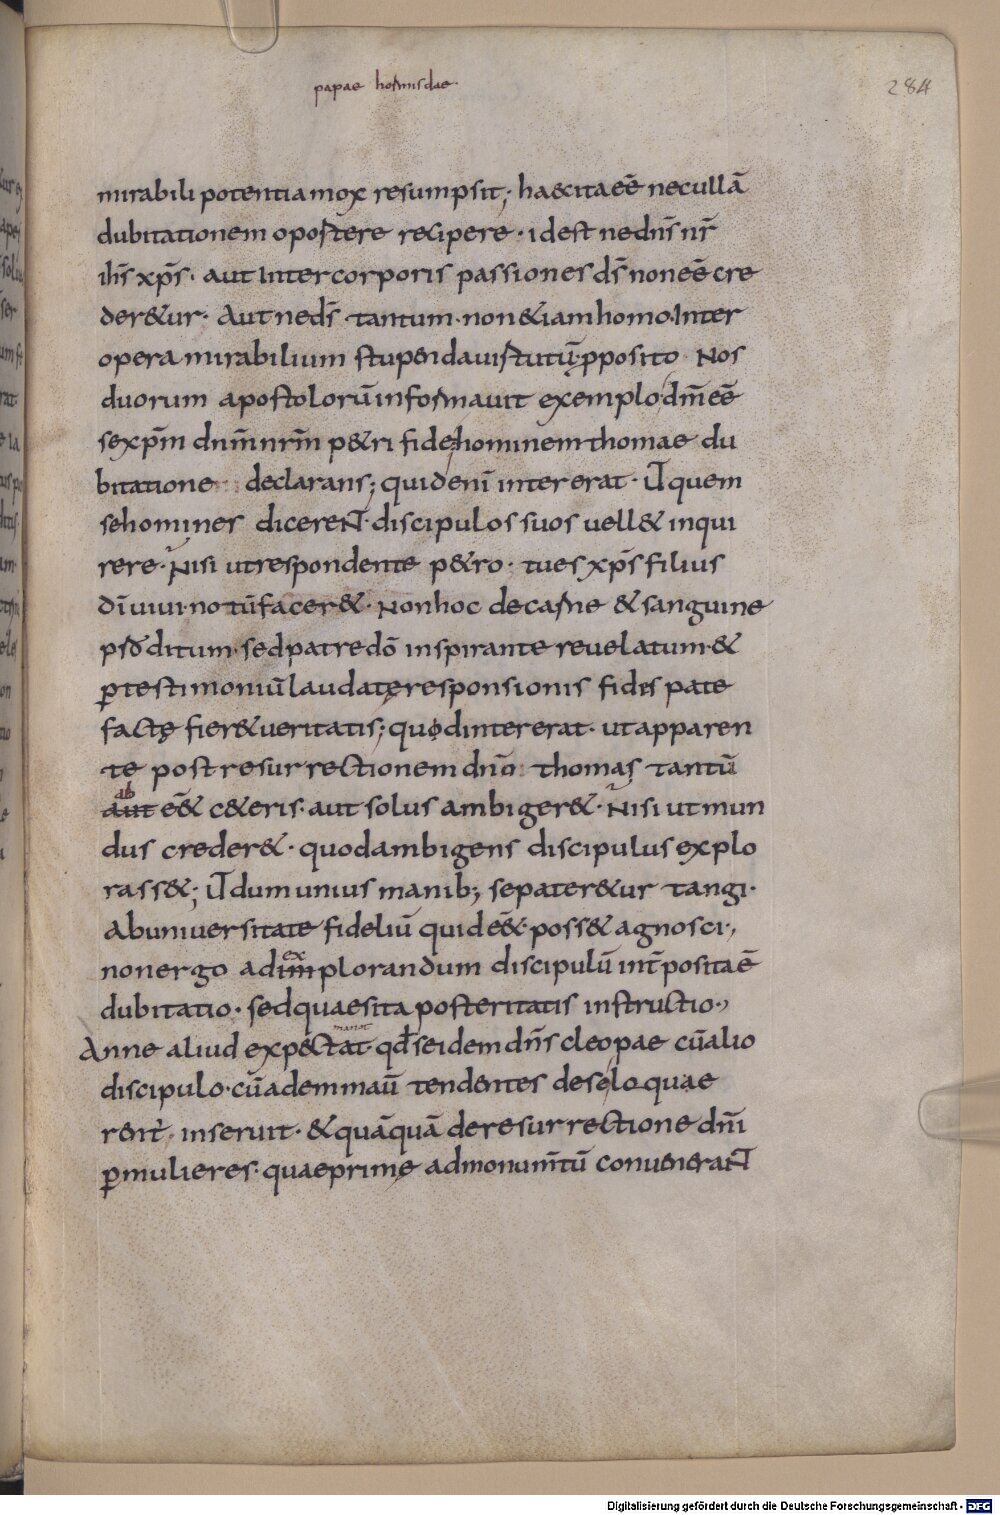 papae hormisdae.
284
mirabili potentia mox resumpsit; haec ita eē nec ullā
dubitationem oportere recipere · id est ne dn̄s nr̄
ih̄s xp̄s · aut inter corporis passiones ds̄ non eē cre
der&ur · Aut ne ds̄ tantum · non &iam homo · Inter
opera mirabilium stupenda uirtutū; pposito Nos
duorum apostolorū informauit exemplo; dm̄ eē
se xp̄m dnm̄ nrm̄ p&ri fide; hominem thomae du
bitatione declarans; quid enī intererat · Ut quem
se homines dicerent · discipulos suos uell& inqui
rere · Nisi ut respondente p&ro · tu es xp̄s filius
dī uiui · notū facer& · Non hoc de carne & sanguine
ditum · sed patre dō inspirante reuelatum · &
p testimoniū laudatę responsionis fides pate
factę fier& ueritatis; quod intererat · ut apparen
te post resurrectionem dnō thomas tantū
ab
aut eē& c&eris · aut solus ambiger& · Nisi ut mun
dus creder& · quod ambigens discipulus explo
rass&; Ut dum unius manib; se pater&ur tangi ·
ab uniuersitate fideliū quid eē& · poss& agnosci ·,
ex
non ergo ad implorandum discipulū int̄posita ē
dubitatio · sed quaesita posteritatis instructio ·,
Anne aliud expectat · qd̄ se idem dn̄s cleopae cū alio
discipulo · cū ad emmaū tendentes de se loquae
rent · inseruit · & quāquā de resurrectione dn̄i
p mulieres · quae primę ad monumētū conuenerant
Digitalisierung gefördert durch die Deutsche Forschungsgemeinschaft - DFG